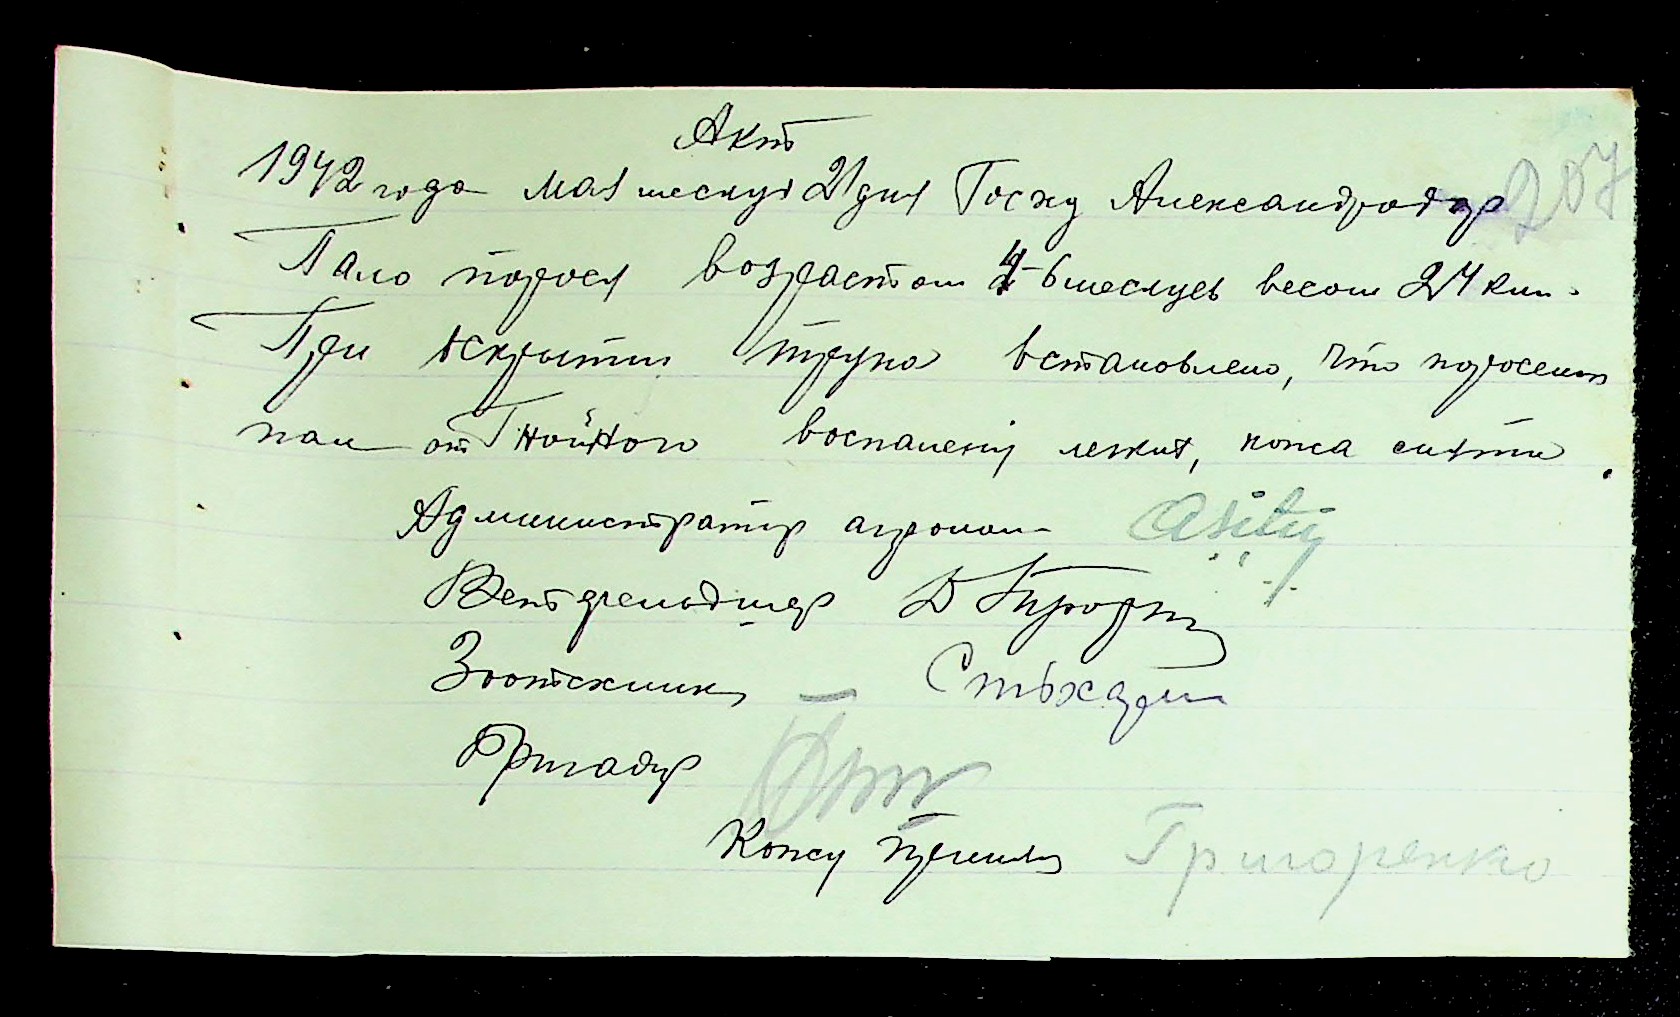 Акт
207
1942 года мая месяца 21 дня Госху Александродар
Пало порося возрастом 4-6 месяцев весом 24 клм.
При вскрытии трупа встановлено, что поросенок
пал от Гнойного воспаления легких, кожа снята.
Администратор агроном
Ветфельдшер
Зоотехник
Бригадир
Кожу принял Григоренко